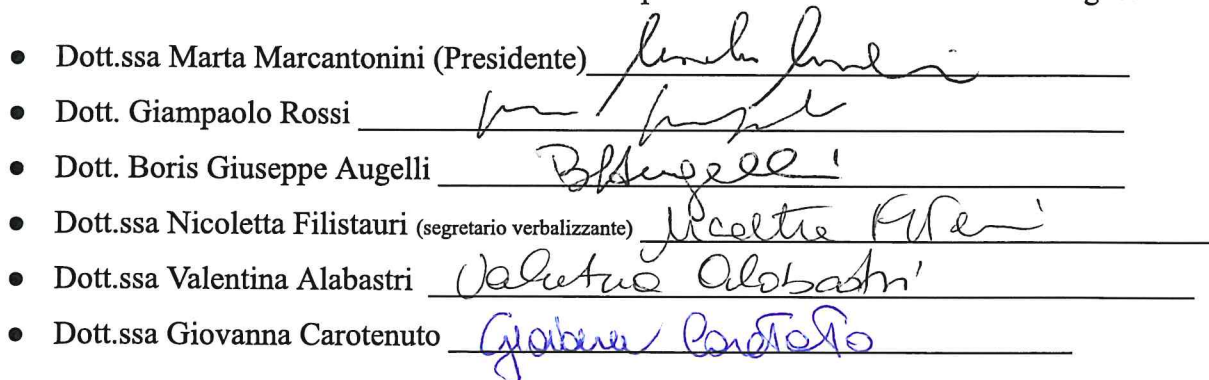 • Dott.ssa Marta Marcantonini (Presidente)
• Dott. Giampaolo Rossi
• Dott. Boris Giuseppe Augelli BGAugelli
• Dott.ssa Nicoletta Filistauri (segretario verbalizzante) Nicoletta
• Dott.ssa Valentina Alabastri Valentina Alabastri
• Dott.ssa Giovanna Carotenuto Giovanna